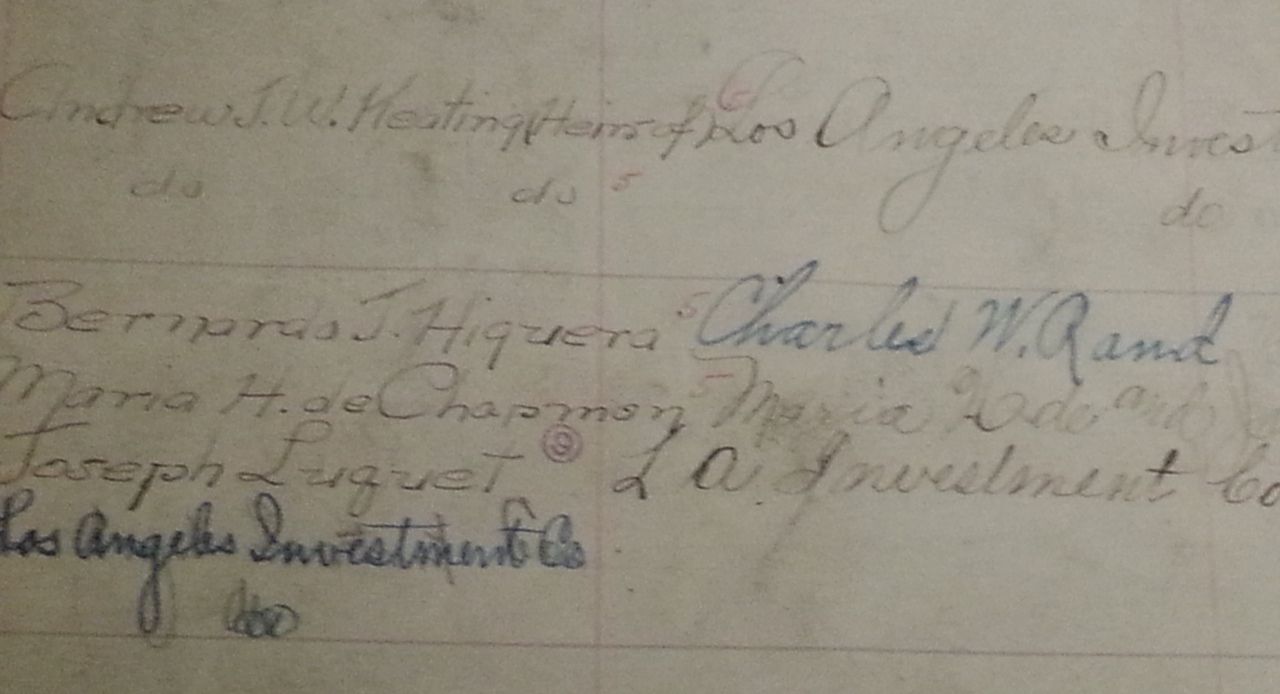 Andrew J.W. Keating (Heirs of) 6 Los Angeles Invest
do do 5 do
Bernardo J. Higuera 5 Charles W. Rand
Maria H. de Chapman 5 Maria H de
Joseph Luguet 9 L A. Investment Co
Los Angeles Investment Co
do